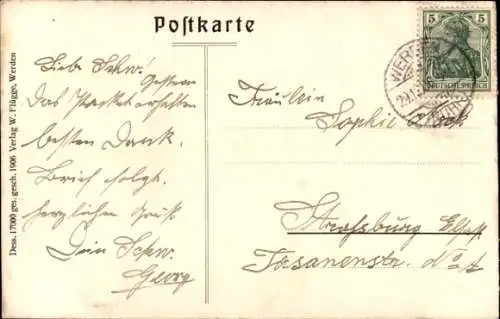 Postkarte
Dess. 17000 ges. gesch. 1906 Verlag W. Flügge, Werden
Liebe Schw!
Gestern
das Packet erhalten
besten Dank.
Brief folgt.
herzlichen Gruß
Dein Schw.
Georg
5 5
DEUTSCHES REICH
WERDEN
Fräulein
Sophie
Straßburg Elsaß
Fasanenstr.